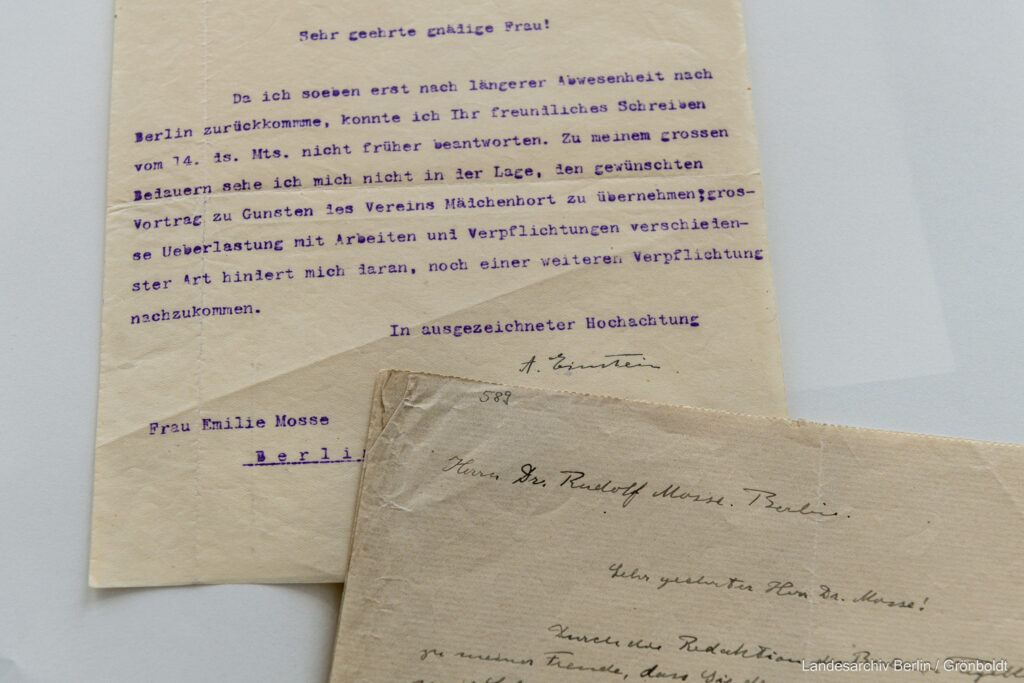 Sehr geehrte gnädige Frau!
Da ich soeben erst nach längerer Abwesenheit nach
Berlin zurückkommme, konnte ich Ihr freundliches Schreiben
vom 14. ds. Mts. nicht früher beantworten. Zu meinem grossen
Bedauern sehe ich mich nicht in der Lage, den gewünschten
Vortrag zu Gunsten des Vereins Mädchenhort zu übernehmen;gros-
se Ueberlastung mit Arbeiten und Verpflichtungen verschieden-
ster Art hindert mich daran, noch einer weiteren Verpflichtung
nachzukommen.
In ausgezeichneter Hochachtung
A. Einstein
Frau Emilie Mosse
Berli
589
Herrn Dr. Rudolf Mosse. Berlin.
Sehr geehrter Herr Dr. Mosse!
Durch die Redaktion
zu meiner Freude, dass Sie
Landesarchiv Berlin / Grönboldt